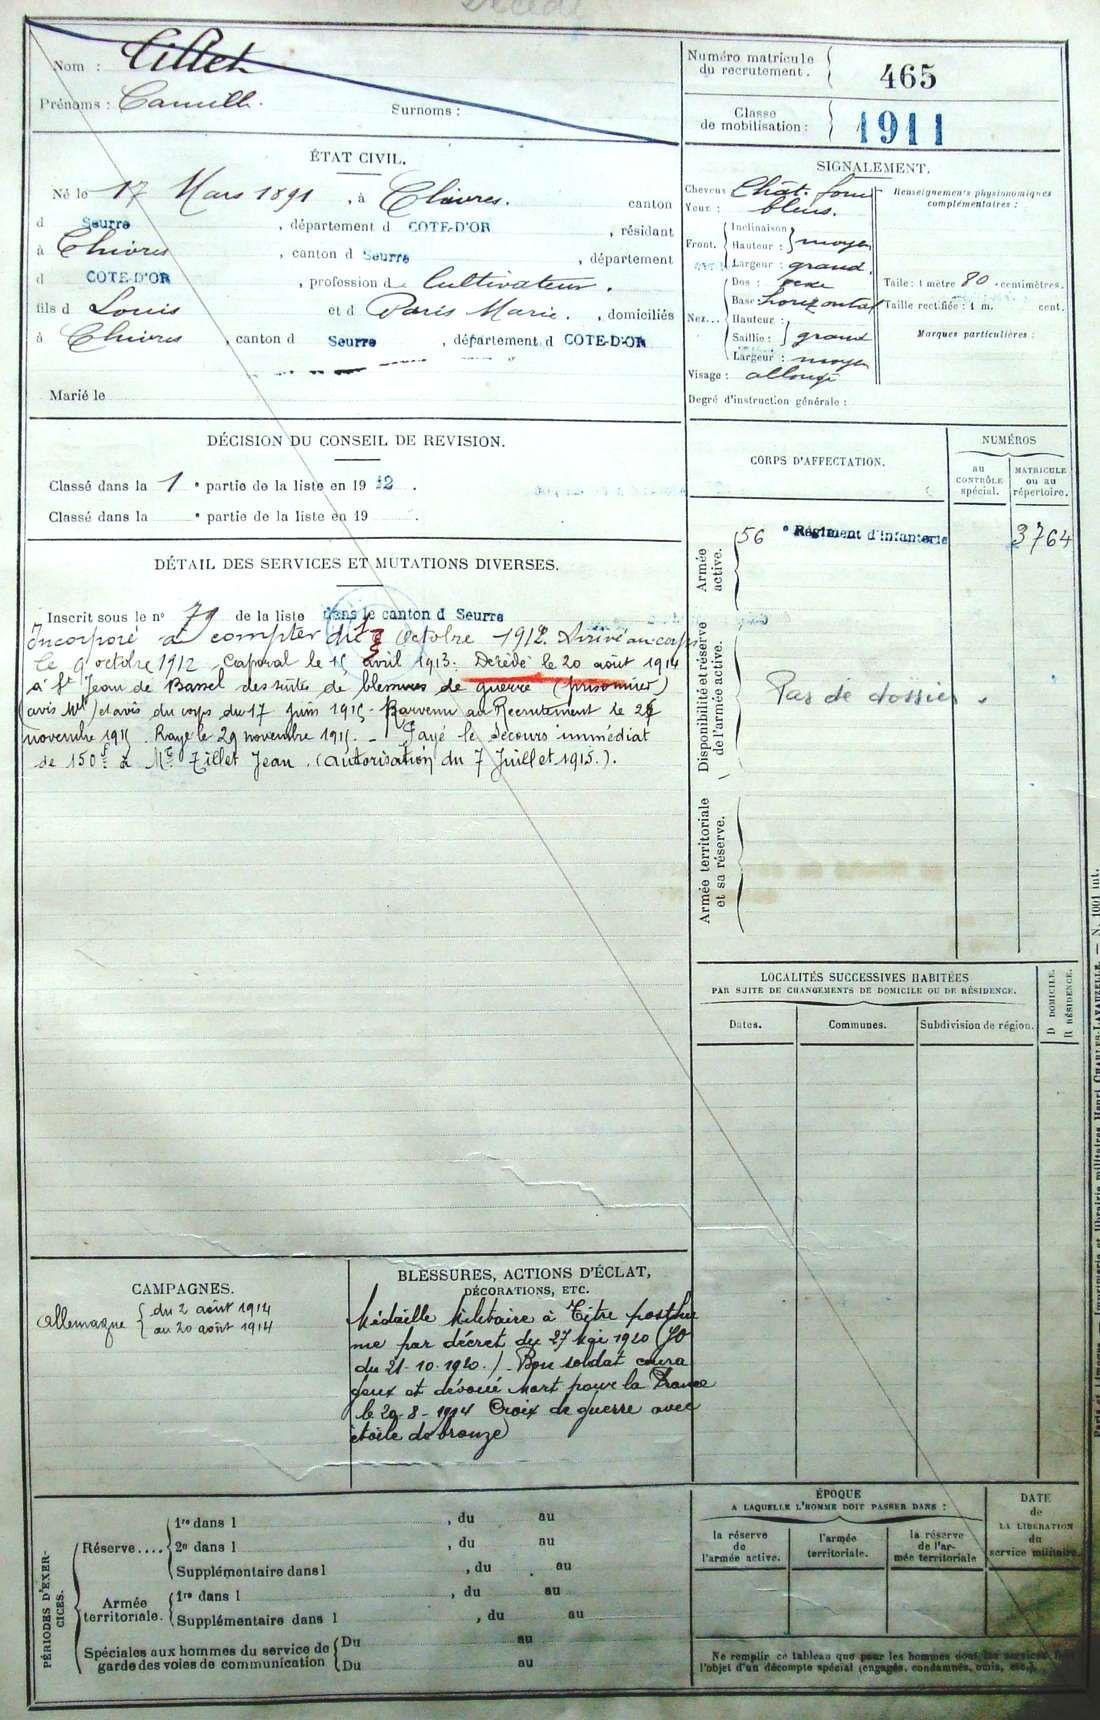 Décédé
Nom : Tillet
Prénoms : Camille. Surnoms :
Numéro matricule du recrutement. 465
Classe de mobilisation : 1911
ÉTAT CIVIL.
Né le 17 Mars 1891, à Chivres. canton
d Seurre, département d COTE-D'OR, résidant
à Chivres, canton d Seurre, département
d COTE-D'OR, profession de Cultivateur.
fils d Louis et d Paris Marie., domiciliés
à Chivres, canton d Seurre, département d COTE-D'OR
Marié le
SIGNALEMENT.
Cheveux Chât. foncé
Yeux : bleus.
Front. Inclinaison Hauteur : moyen
Largeur : grand.
Nez... Dos :
Base : horizontal
Hauteur :
Saillie : grand
Largeur : moyen
Visage : allongé
Degré d'instruction générale :
Renseignements physionomiques complémentaires :
Taille : 1 mètre 80 centimètres.
Taille rectifiée : 1 m. cent.
Marques particulières :
DÉCISION DU CONSEIL DE REVISION.
Classé dans la 1 e partie de la liste en 19 12.
Classé dans la e partie de la liste en 19 .
DÉTAIL DES SERVICES ET MUTATIONS DIVERSES.
Inscrit sous le n° 79 de la liste dans le canton d Seurre
Incorporé à compter du octobre 1912. Arrivé au corps
le 9 octobre 1912. Caporal le 15 avril 1913. Décédé le 20 août 1914
à St Jean de Bassel des suites de blessures de guerre (prisonnier)
(avis Mel) et avis du corps du 17 juin 1915 - Parvenu au Recrutement le
novembre 1915. Rayé le 29 novembre 1915. - Payé le secours immédiat
de 150 f. à Mr Tillet Jean. (autorisation du 7 Juillet 1915.).
CORPS D'AFFECTATION.
NUMÉROS
au CONTRÔLE spécial.
MATRICULE ou au répertoire.
Armée active.
56 e Régiment d'infanterie 3764
Disponibilité et réserve de l'armée active.
Pas de dossier.
Armée territoriale et sa réserve.
LOCALITÉS SUCCESSIVES HABITÉES
PAR SUITE DE CHANGEMENTS DE DOMICILE OU DE RÉSIDENCE.
Dates. Communes. Subdivision de région.
D DOMICILE.
R RÉSIDENCE.
CAMPAGNES.
Allemagne du 2 août 1914
au 20 août 1914
BLESSURES, ACTIONS D'ÉCLAT,
DÉCORATIONS, ETC.
Médaille Militaire à Titre posthu
me par décret du 27 Mai 1920 (JO
du 21-10-1920.) Bon soldat coura
geux et dévoué mort pour la France
le 20-8-1914 Croix de guerre avec
étoile de bronze
PÉRIODES D'EXERCICES.
Réserve....
1re dans l , du au
2e dans l , du au
Supplémentaire dans l , du au
Armée territoriale.
1re dans l , du au
Supplémentaire dans l , du au
Spéciales aux hommes du service de garde des voies de communication
Du au
Du au
ÉPOQUE
A LAQUELLE L'HOMME DOIT PASSER DANS :
la réserve de l'armée active.
l'armée territoriale.
la réserve de l'armée territoriale
DATE de LA LIBÉRATION du service militaire.
Ne remplir ce tableau que pour les hommes dont les services font
l'objet d'un décompte spécial (engagés, condamnés, omis, etc.).
Paris et Limoges. — Imprimerie et librairie militaires Henri CHARLES-LAVAUZELLE. — N. 1001 int.